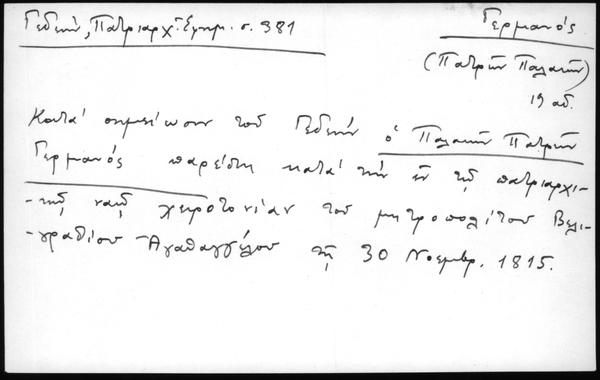 Γεδεών, Πατριαρχ. Εφημ. σ. 381
Γερμανός
(Παλαιών Πατρών)
19 αἰ.
Κατά σημείωσιν τοῦ Γεδεών ὁ Παλαιῶν Πατρῶν
Γερμανός παρέστη κατά τήν ἐν τῷ πατριαρχι-
-κῷ ναῷ χειροτονίαν τοῦ μητροπολίτου Βελι-
-γραδίου Ἀγαθαγγέλου τῇ 30 Νοεμβρ. 1815.